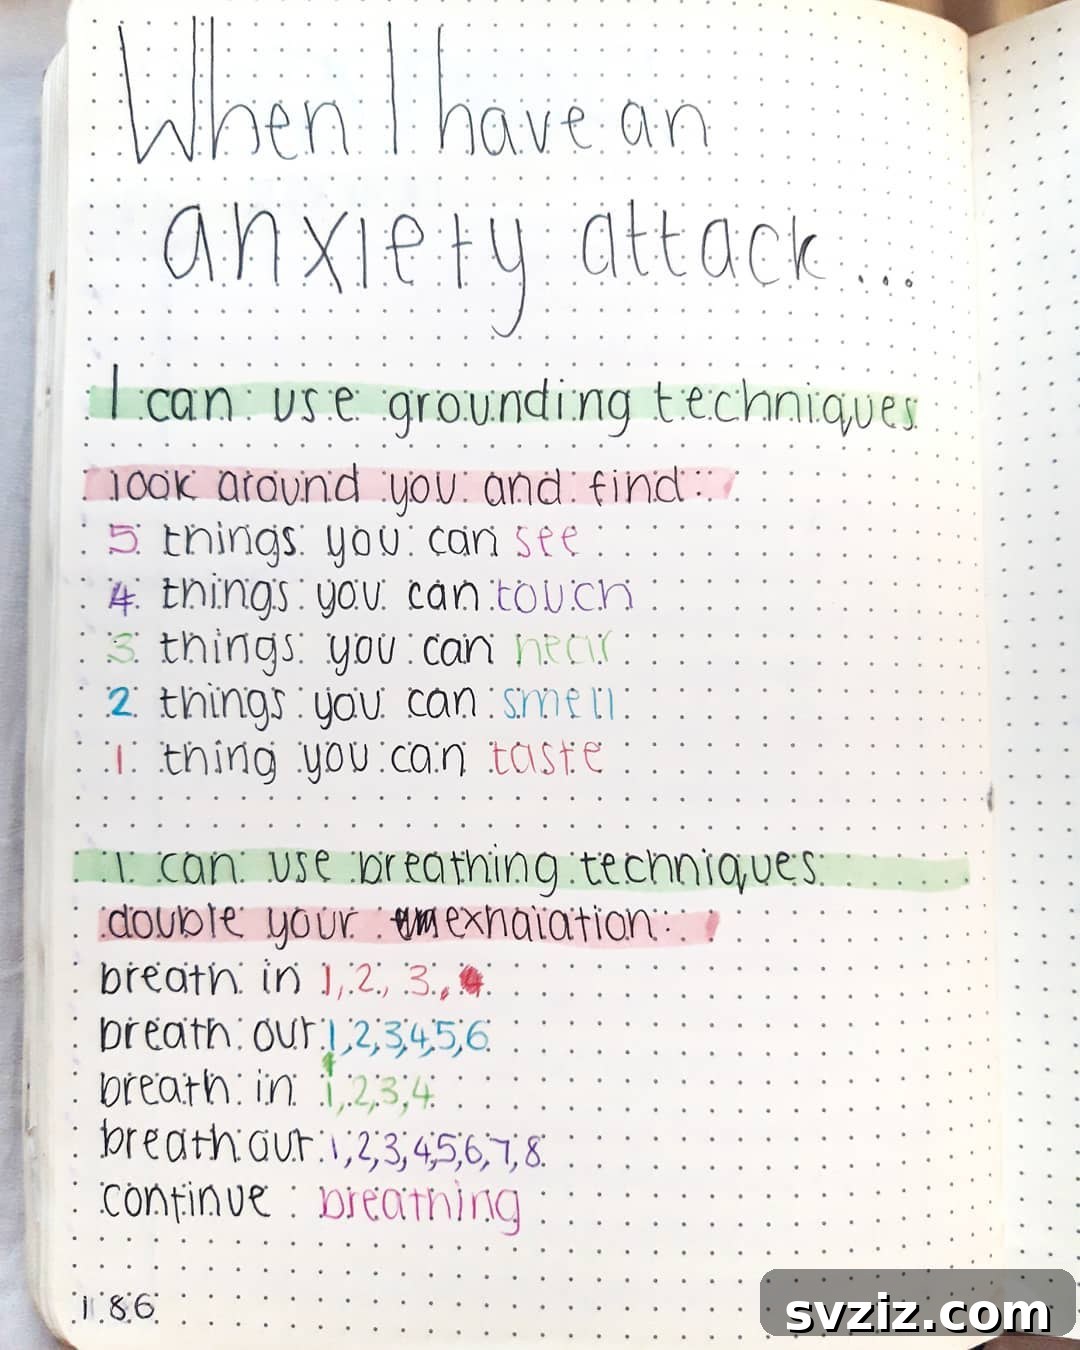 When I have an
anxiety attack...
I can use grounding techniques
look around you and find:
5 things you can see
4 things you can touch
3 things you can hear
2 things you can smell
1 thing you can taste
I can use breathing techniques
double your exhalation
breath in 1, 2, 3,
breath out 1,2,3,4,5,6
breath in 1,2,3,4
breath out 1,2,3,4,5,6,7,8
continue breathing
186
svziz.com